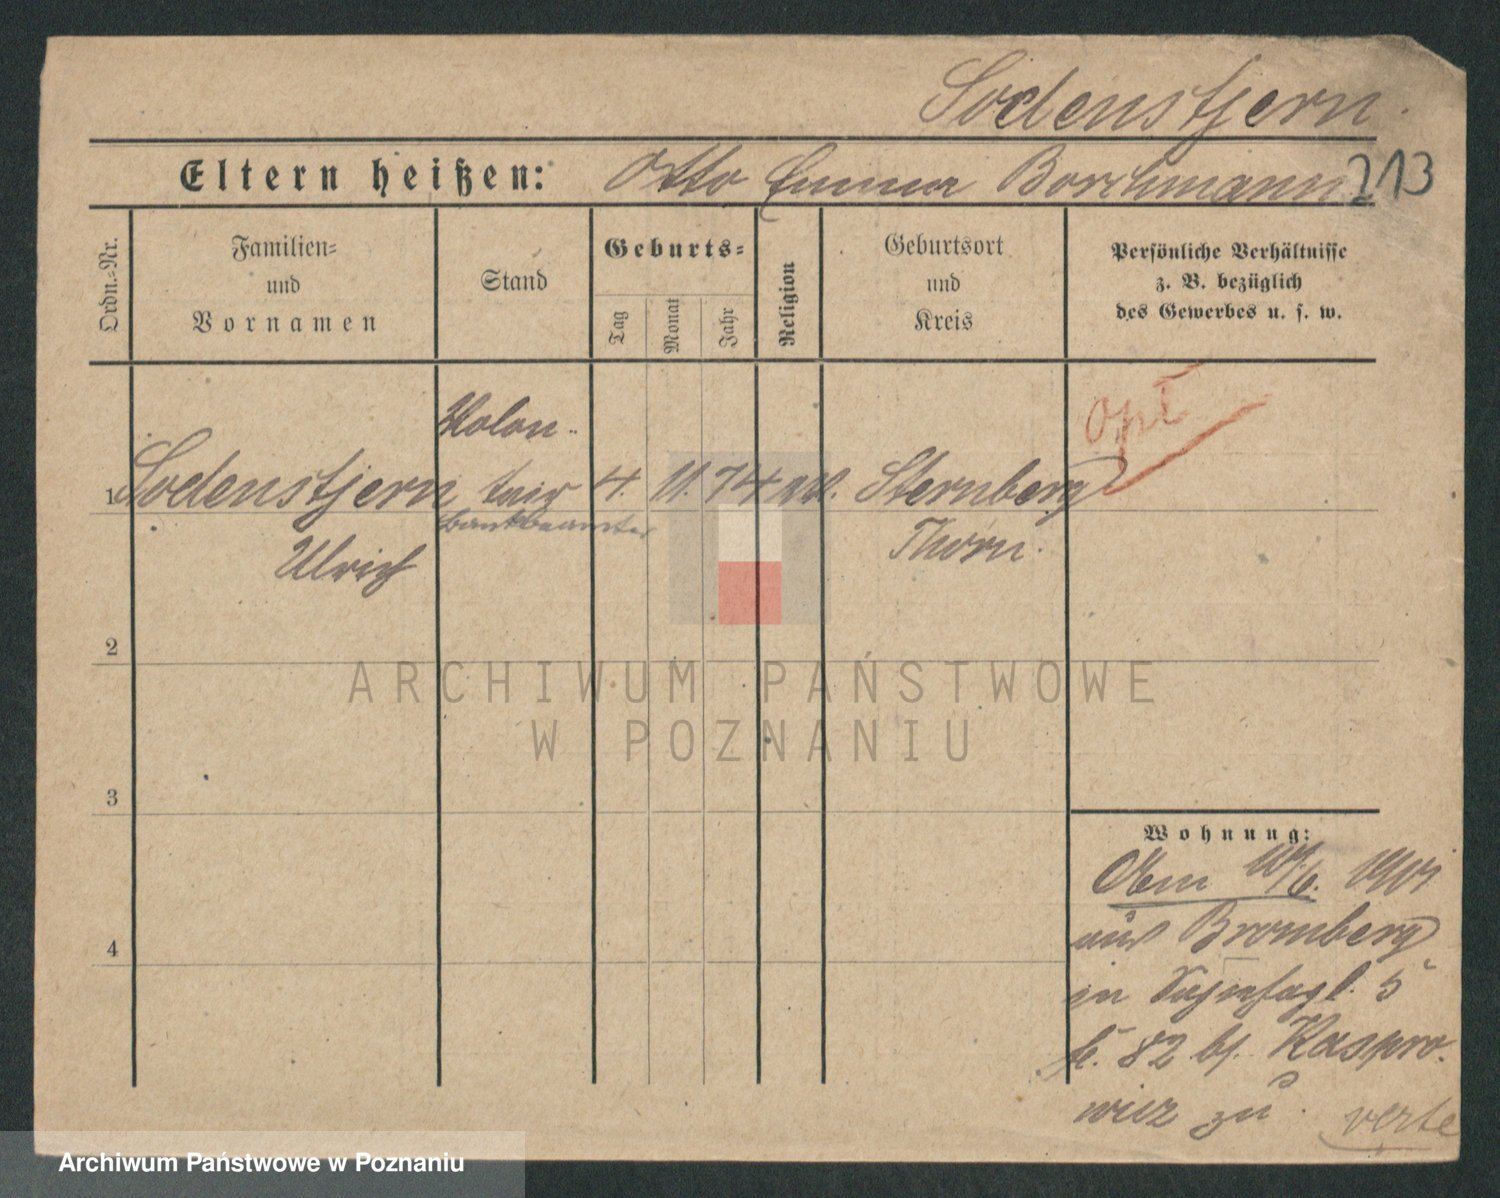 Sodenstjern.
Eltern heißen: Otto Emma Borchmann 213
Ordn.-Nr.
Familien-
und
Vornamen
Stand
Geburts-
Tag
Monat
Jahr
Religion
Geburtsort
und
Kreis
Persönliche Verhältnisse
z. B. bezüglich
des Gewerbes u. s. w.
Volon-
1 Sodenstjern tair 4. 11. 74 Sternberg
Bankbeamter
Ulrich
Thorn.
2
3
4
Wohnung:
1901
aus Bromberg
in 5
82 bj. Kaspro-
wicz zu.
verte
ARCHIWUM PAŃSTWOWE
W POZNANIU
Archiwum Państwowe w Poznaniu